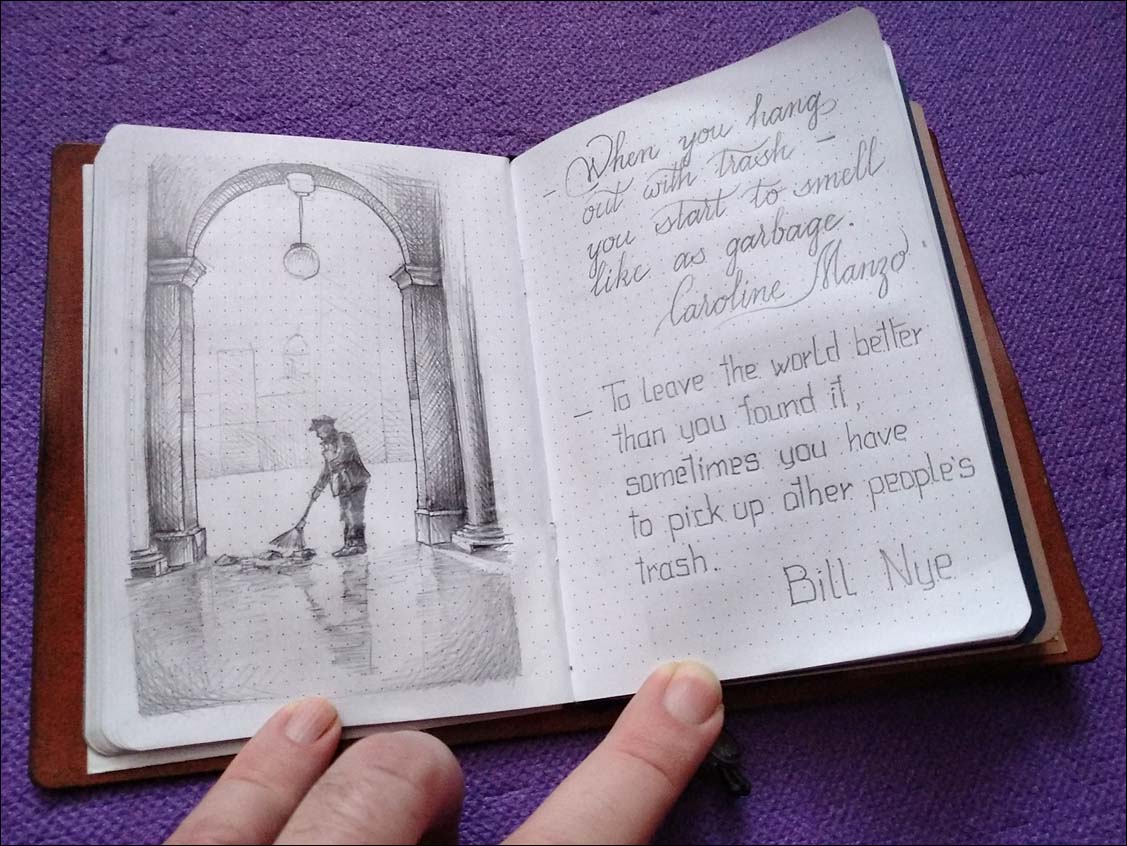 - When you hang
out with trash -
you start to smell
like as garbage.
Caroline Manzo.
- To leave the world better
than you found it,
sometimes you have
to pick up other people's
trash.
Bill Nye